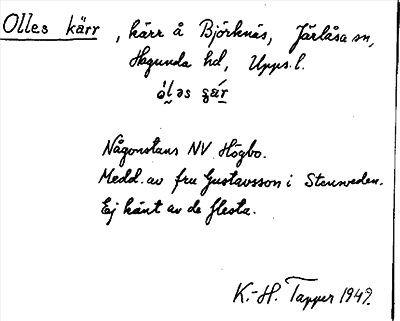 Olles kärr, kärr å Björknäs, Järlåsa sn,
Hagunda hd, Upps. l.
Någonstans NV Högbo.
Medd. av fru Gustavsson i Stensveden.
Ej känt av de flesta.
K.-H. Tapper 1949.